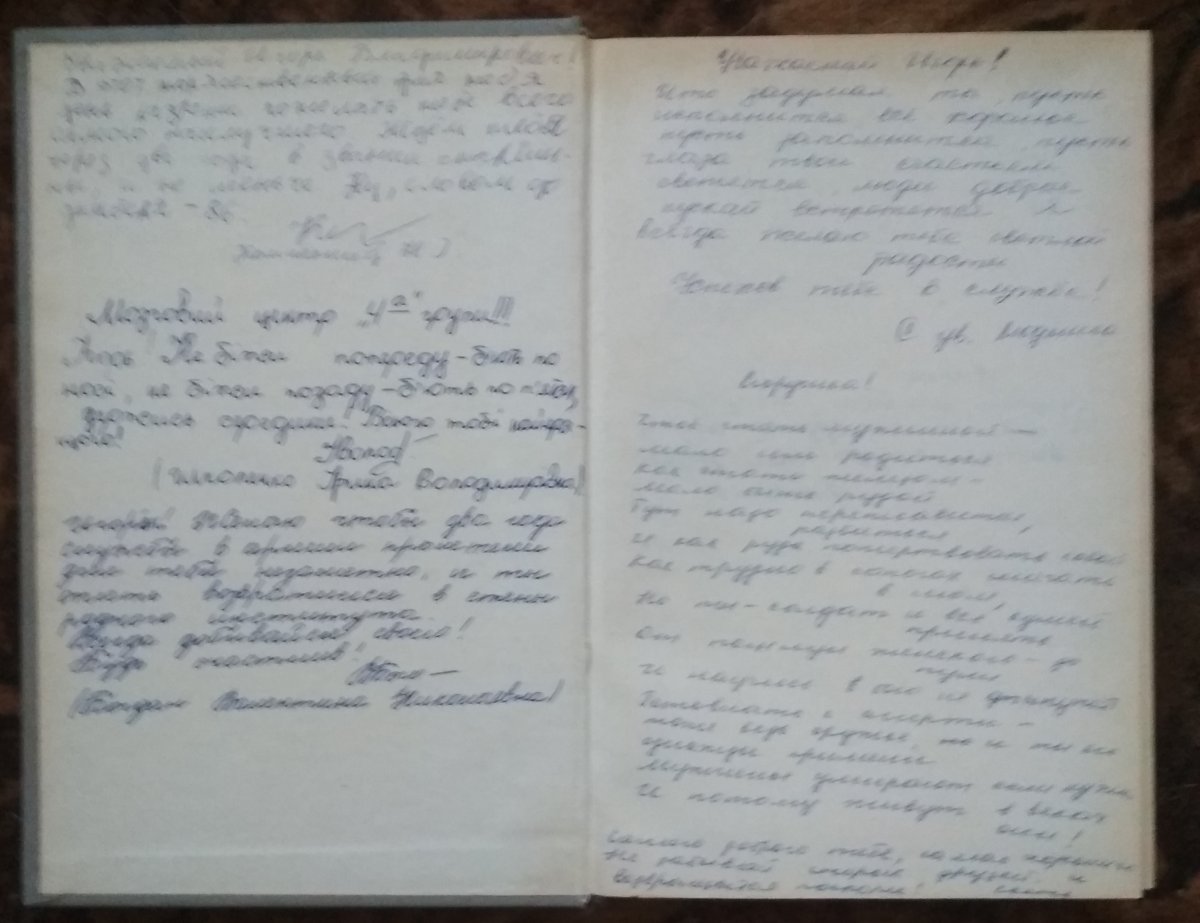 Уважаемый Игорь Владимирович!
В этот торжественный для тебя
день хочу пожелать тебе всего
самого наилучшего. Ждём тебя
через два года в звании
и не меньше
декабря - 86.
Мозговий центр "4а" групи!!!
Ігось Не бійся попереду - б'ють по
носі, не бійся позаду - б'ють по п'яті,
держись середини! Всього тобі найкра-
щого!
Володимирівна)
Игорь! Желаю чтобы два года
службы в армии пролетели
для тебя незаметно, и ты
опять возвратился в стены
родного института.
Всегда добивайся своего!
Будь счастлив!
(Богдан Валентина Николаевна)
Уважаемый Игорь!
Что задумал ты, пусть
исполнится всё хорошее
пусть запомнится, пусть
глаза твои счастьем
светятся, люди добрые
пускай встретятся Я
всегда желаю тебе светлой
радости
Успехов тебе в службе!
С ув. Людмила
Игорушка!
Чтоб стать мужчиной —
мало им родиться
Как стать железом -
мало быть рудой
Ты надо переплавиться,
разбиться,
И как руда пожертвовать собой
Как трудно в сапогах шагать
в июле,
Но ты - солдат и всё сумей
принять
От поцелуя женского - до
пули
И научись в бою не отступать
Готовность к смерти -
тоже ведь оружье, но и ты его
однажды примени
Мужчины умирают если нужно
И потому живут в веках
они!
самого доброго тебе, самого хорошего
Не забывай старых друзей, и